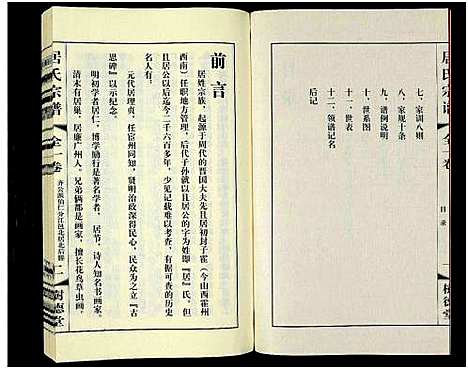 居氏宗谱
全一卷
目录
樹德堂
七、家训八则
八、家规十条
九、谱例说明
十、世系图
十一、世表
十二、领谱记名
后记
前言
居姓宗族，起源于周代的晋国大夫先且居初封于霍（今山西霍州
西南）任职地方管理，后代子孙就以且居公的名为姓即『居』氏。但
且居公以后迄今二千六百多年，少见记载难以考查，有据可查的历史
名人有：
元代居理贞，任宦州同知，贤明治政深得民心，民众为立『古
思碑』以示纪念。
明初学者居仁，博学励行是著名学者，居节，诗人知名书画家。
清末有居巢、居廉广州人。兄弟俩都是画家，擅长花鸟草虫画。
居氏宗谱
全一卷
樹德堂